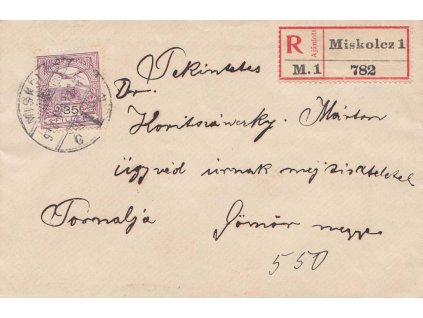 R Ajánlott Miskolcz 1
M. 1 782
MISKOLCZ
35
FILLÉR
Tekintetes
Dr.
Márton
ügyvéd úrnak
Tornalja Gömör megye
550